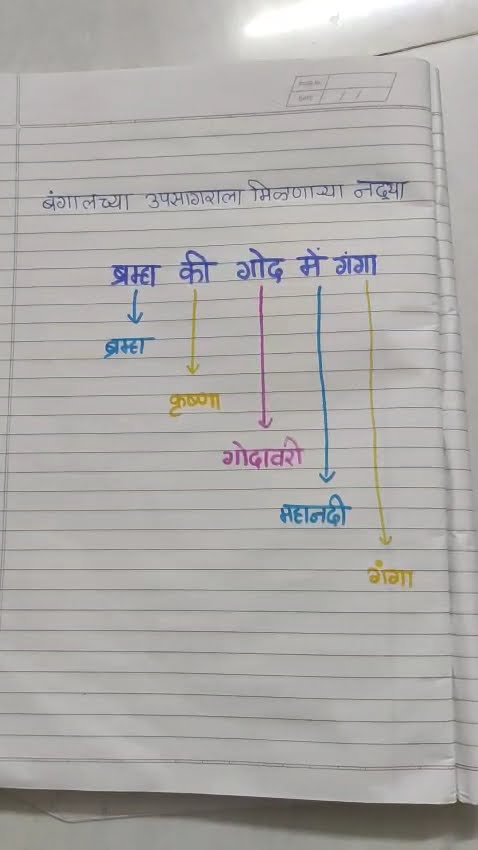 बंगालच्या उपसागराला मिळणाऱ्या नद्या
ब्रम्हा की गोद में गंगा
ब्रम्हा
कृष्णा
गोदावरी
महानदी
गंगा